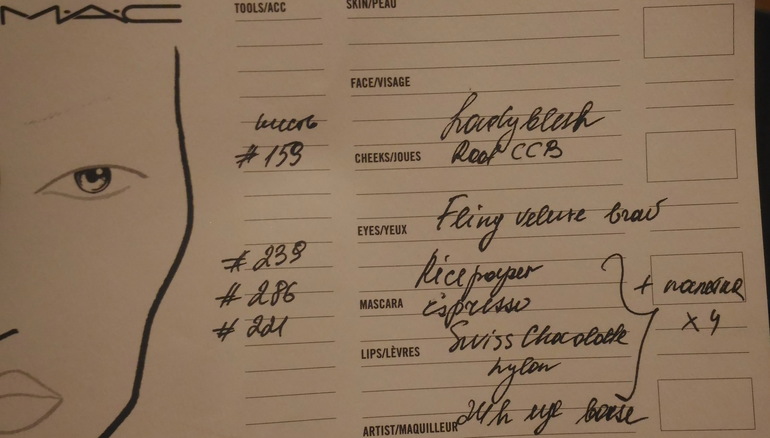 MAC
TOOLS/ACC
SKIN/PEAU
FACE/VISAGE
кисть
Ladyblush
#159
CHEEKS/JOUES
CCB
EYES/YEUX
Fling veluxe brow
#239
Ricepaper
#286
MASCARA
espresso
+ палетка
x 4
#221
LIPS/LÈVRES
Swiss Chocolate
nylon
ARTIST/MAQUILLEUR
24h eye base